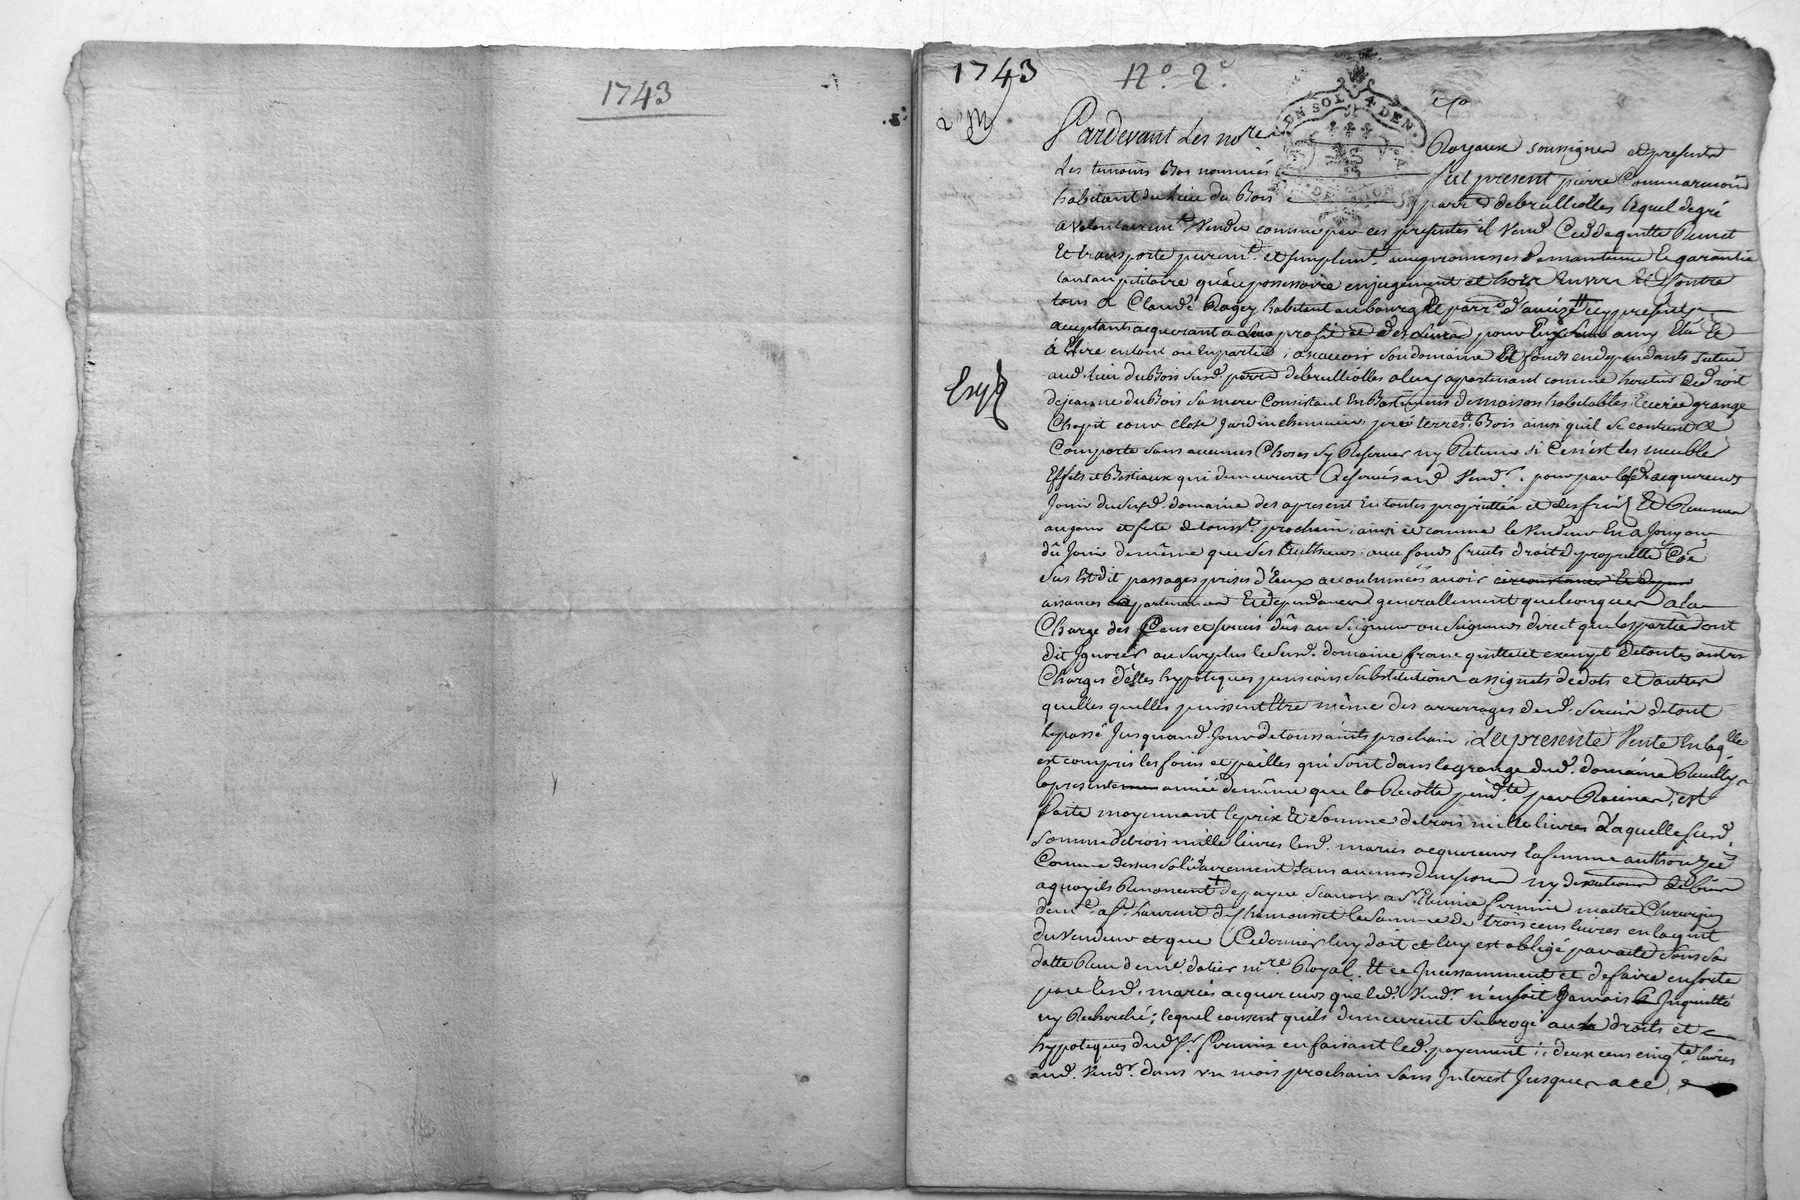 1743
1743
N° 2e
UN SOL 4 DEN.
Pardevant Les nores
Royaux soussignes et presents
Les temoins Bas nommés
fut present pierre Commarmond
habitant du lieu du Bois
parre debrulliolles lequel degré
a volontairemt Vendu comme par ces presentes il Vend Cedde quitte Remet
Et transporte puremt et simplemt avec promesses de maintenue Et garantie
tant au petitoire qu'au possessoire en jugement et hors Envers Et Contre
tous a Claude Ragey habitant au bourg Et parre d'aveize
acceptants acquerant a profit et pour Eux Leurs amy Elû Et
à Elire entout ou Enpartie ; ascavoir son domaine Et fonds endependants situé
aud. lieu du Bois susd. parre debrulliolles aluy apartenant comme heritier de Droit
dejeanne duBois sa mere Consistant En Batiments demaison habitables Ecurie grange
Chapit cour close Jardin chenevier pré terres Bois ainsi quil se contient Et
Comporte sans aucunes Choses sy Reserver ny Retenir si Cen'est les meubles
Effets et Bestiaux qui demeurent Reservés aud Vendr. pour par lesd. acquereurs
Jouir du susd. domaine des apresent En toutes proprietés et des fruits Et Revenus
au jour et fete detousst. prochain ; ainsi et comme le Vendeur En a Jouy ou
dû Jouir de même que ses Autheurs ; avec fonds fruits droits de proprietté
Sus Est dit passages prises d'Eaux accoutumées avoir circonstances Et dépen
aisances apartenances Et dépendances generallement quelconques a la
Charge des Cens et servis dûs au Seigneur ou Seigneurs direct que les parties ont
dit Ignorer au surplus le susd. domaine franc quitte et exempt detoutes autres
Charges dettes hypoteques pensions substitutions assignats dedots et autres
quelles quelles puissent Etre même des arrerages desd. servis detout
le passé Jusquaud. Jour detoussaints prochain ; La presente Vente En laqlle
est compris les foins et pailles qui sont dans la grange dud. domaine Recuillys
la presente année de même que la Recolte pendte par Racines ; est
faite moyennant le prix Et somme detrois mille livres Laquelle susd.
somme detrois mille livres lesd. mariés acquereurs la femme authorizée
Comme dessus solidairement sans aucunes division ny discution debiens
a quoy ils Renoncent + depayer scavoir a Sr. maitre Chirurgien
a Sr. Laurent de Chamousset la somme de trois cens livres en lacquit
du Vendeur et que Ce dernier luy doit et luy est obligé par acte sous sa
datte Reçu de me. dalier nore. Royal Et ce Incessamment et defaire en sorte
pour lesd. mariés acquereurs que led. Vendr. n'en soit Jamais Inquietté
ny Recherché ; lequel consent quils demeurent subrogé aux droits et
hypoteques dud. Sr. en faisant led. payement ; deux cens cinqte livres
aud. Vendr. dans un mois prochain sans Interest Jusques a ce